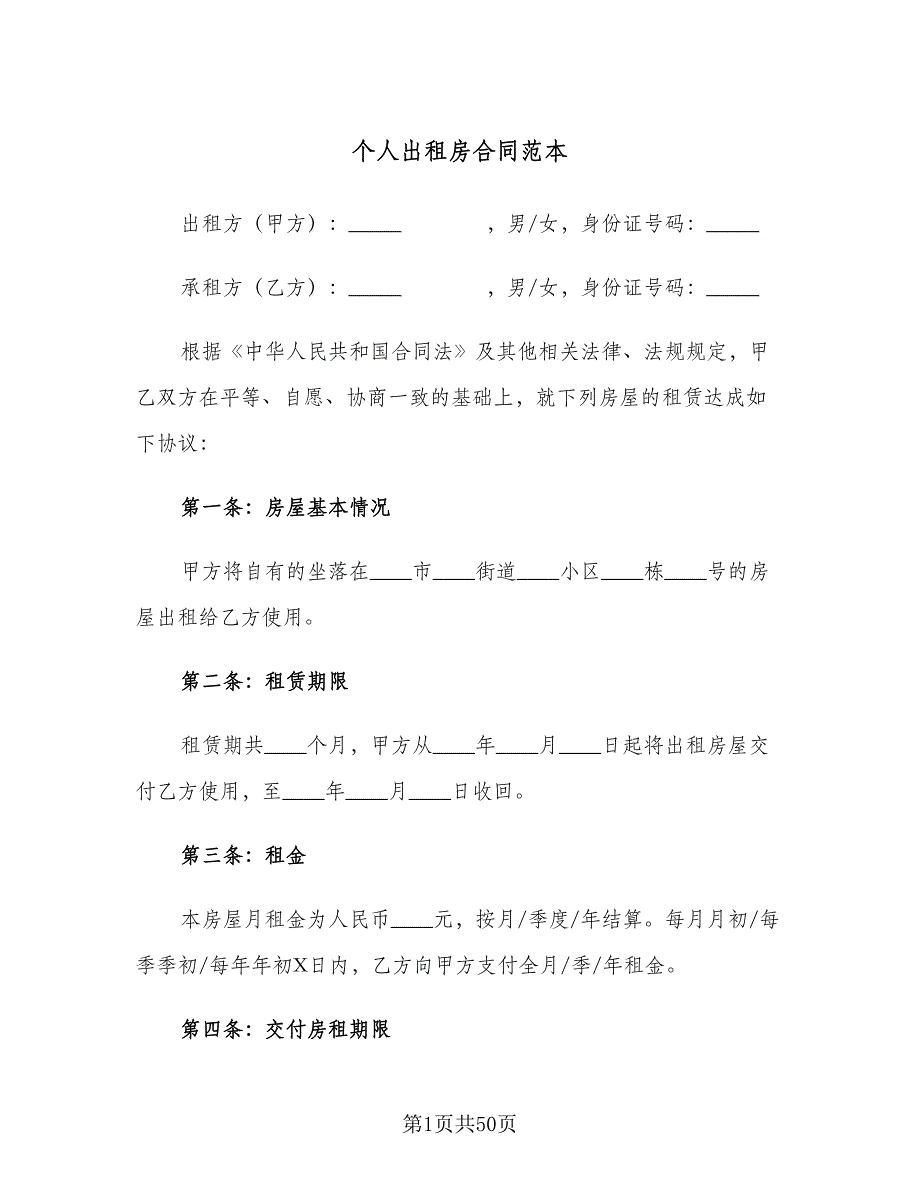 个人出租房合同范本
出租方（甲方）：_____ ，男/女，身份证号码：_____
承租方（乙方）：_____ ，男/女，身份证号码：_____
根据《中华人民共和国合同法》及其他相关法律、法规规定，甲
乙双方在平等、自愿、协商一致的基础上，就下列房屋的租赁达成如
下协议：
第一条：房屋基本情况
甲方将自有的坐落在____市____街道____小区____栋____号的房
屋出租给乙方使用。
第二条：租赁期限
租赁期共____个月，甲方从____年____月____日起将出租房屋交
付乙方使用，至____年____月____日收回。
第三条：租金
本房屋月租金为人民币____元，按月/季度/年结算。每月月初/每
季季初/每年年初X日内，乙方向甲方支付全月/季/年租金。
第四条：交付房租期限
第1页共50页